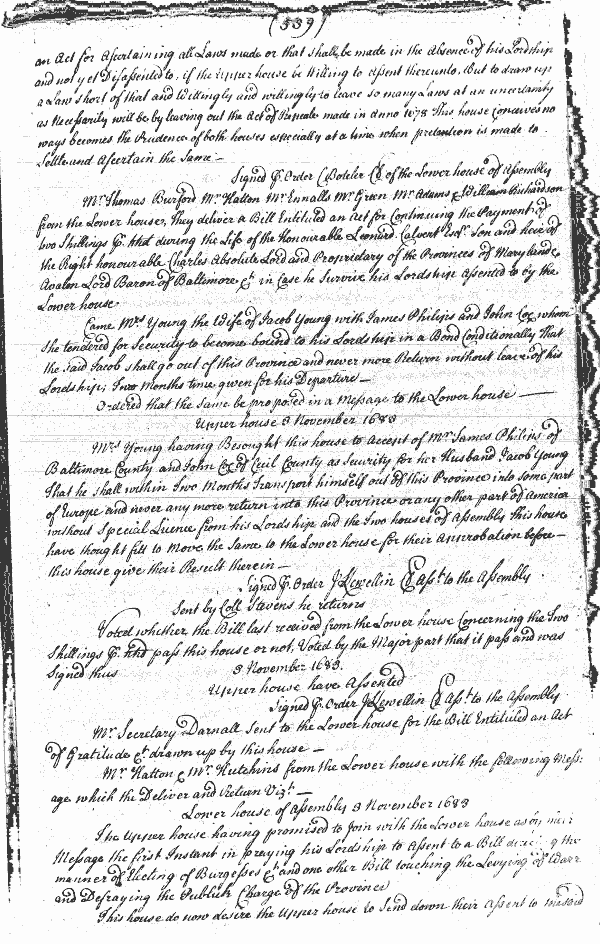 (539)
an Act for Ascertaining all Laws made or that shall be made in the Absence of his Lordship
and not yet Disassented to, if the Upper house be Willing to Assent thereunto, But to draw up
a Law short of that and Willingly and willingly to leave so many Laws at an uncertainty
as Necessarily will be by leaving out the Act of Repeale made in Anno 1678 This house conceives no
ways becomes the Prudence of both houses especially at a time when pretention is made to
Settle and Ascertain the Same —
Signed ꝑ Order C Boteler Cl of the Lower house of Assembly
Mr. Thomas Burford Mr. Hatton Mr. Ennalls Mr. Green Mr. Adams & William Richardson
from the Lower house, they deliver a Bill Entituled an Act for Continuing the Payment of
two Shillings ꝑ hhd during the Life of the Honourable Leonard Calvert Esqr. Son and heir of
the Right honourable Charles Absolute Lord and Proprietary of the Provinces of Maryland &
Avalon Lord Baron of Baltimore &c in Case he Survive his Lordship Assented to by the
Lower house
Came Mrs. Young the Wife of Jacob Young with James Philips and John Cox whom
She tendered for Security to become bound to his Lordship in a Bond Conditionally that
the said Jacob shall go out of this Province and never more Return without leave of his
Lordship; Two Months time given for his Departure —
Ordered that the Same be proposed in a Message to the Lower house —
Upper house 3 November 1683
Mrs. Young having Besought this house to Accept of Mr. James Philips of
Baltimore County and John Cox of Cecil County as Security for her Husband Jacob Young
That he shall within Two Months Transport himself out of this Province into some part
of Europe and never any more return into this Province or any other part of America
without Special Licence from his Lordship and the Two houses of Assembly This house
have thought fitt to Move the Same to the Lower house for their Approbation before —
this house give their Result therein —
Signed ꝑ Order J Llewellin Cl Asst. to the Assembly
Sent by Coll Stevens he returns
Voted whether the Bill last received from the Lower house Concerning the Two
Shillings ꝑ hhd pass this house or not, Voted by the Major part that it pass and was
Signed thus
3 November 1683.
Upper house have Assented
Signed ꝑ Order J Llewellin Cl Asst. to the Assembly
Mr. Secretary Darnall Sent to the Lower house for the Bill Entituled an Act
of Gratitude &c drawn up by this house —
Mr. Hatton & Mr. Hutchins from the Lower house with the following Mess:
age which the Deliver and Return Vizt. —
Lower house of Assembly 3 November 1683
The Upper house having promised to Join with the Lower house as by their
Message the first Instant in praying his Lordship to Assent to a Bill the
manner of Electing of Burgesses &c and one other Bill touching the Levying of Warr
and Defraying the Publick Charge of the Province
This house do now desire the Upper house to Send down their Assent to the said